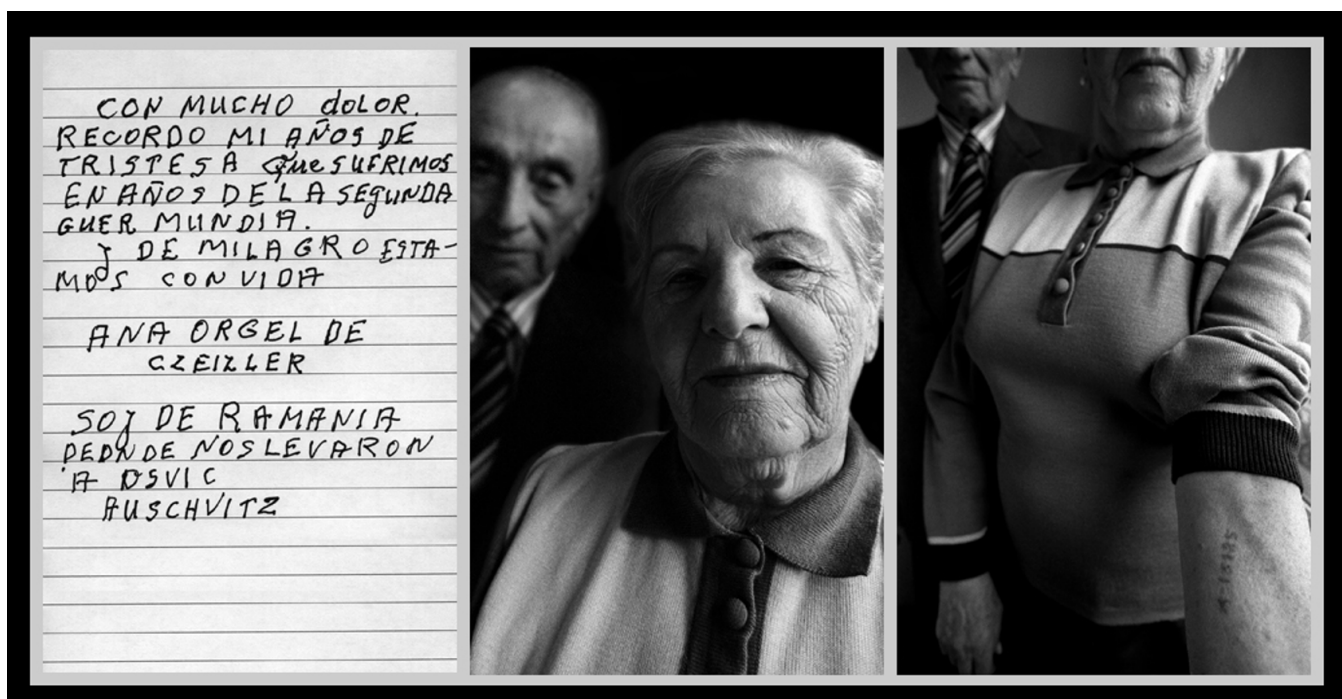 CON MUCHO dOLOR.
RECORDO MI AÑOS DE
TRISTESA QUe SUFRIMOS
EN AÑOS DE LA SEGUNDA
GUER MUNDIA.
Y DE MILAGRO ESTA-
MOS CON VIDA
ANA ORGEL DE
CZEIZLER
SOY DE RAMANIA
DEDNDE NOS LEVARON
A OSVIC
AUSCHVITZ